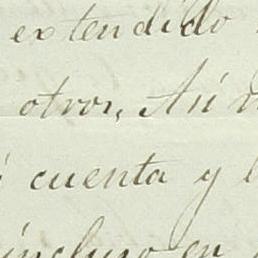 extendido
otros, Así
cuenta y
incluso en